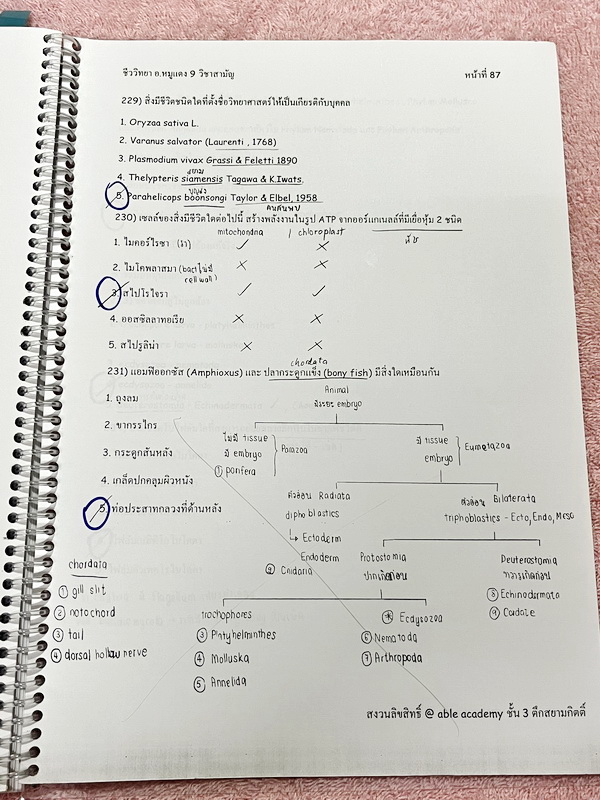 ชีววิทยา อ.หมูแดง 9 วิชาสามัญ หน้าที่ 87
229) สิ่งมีชีวิตชนิดใดที่ตั้งชื่อวิทยาศาสตร์ให้เป็นเกียรติกับบุคคล
1. Oryzaa sativa L.
2. Varanus salvator (Laurenti , 1768)
3. Plasmodium vivax Grassi & Feletti 1890
สยาม
4. Thelypteris siamensis Tagawa & K.Iwats.
บุญส่ง
5. Parahelicaps boonsongi Taylor & Elbel, 1958
คนค้นพบ
230) เซลล์ของสิ่งมีชีวิตใดต่อไปนี้ สร้างพลังงานในรูป ATP จากออร์แกเนลล์ที่มีเยื่อหุ้ม 2 ชนิด
mitochondria / chloroplast
1. ไมคอร์ไรซา (รา) ✓ ✗
2. ไมโคพลาสมา (bact ไม่มี cell wall) ✗ ✗
3. สไปโรไจรา ✓ ✓
4. ออสซิลลาทอเรีย ✗ ✗
5. สไปรูลิน่า ✗ ✗
chordata
231) แอมฟิออกซัส (Amphioxus) และ ปลากระดูกแข็ง (bony fish) มีสิ่งใดเหมือนกัน
1. ถุงลม
2. ขากรรไกร
3. กระดูกสันหลัง
4. เกล็ดปกคลุมผิวหนัง
5. ท่อประสาทกลวงที่ด้านหลัง
Animal
มีระยะ embryo
ไม่มี tissue
มี embryo
① porifera
Parazoa
มี tissue
embryo
Eumetazoa
ตัวอ่อน Radiata
diphoblastics
↳ Ectoderm
Endoderm
② Cnidaria
ตัวอ่อน Bilaterata
triphoblastics - Ecto, Endo, Meso
Protostomia
ปากเกิดก่อน
Deuterostomia
ทวารเกิดก่อน
⑧ Echinodermata
trochophores
③ Platyhelminthes
④ Molluska
⑤ Annelida
Ecdysozoa
⑥ Nematoda
⑦ Arthropoda
chordata
① gill slit
② notochord
③ tail
④ dorsal hollow nerve
สงวนลิขสิทธิ์ @ able academy ชั้น 3 ตึกสยามกิตติ์